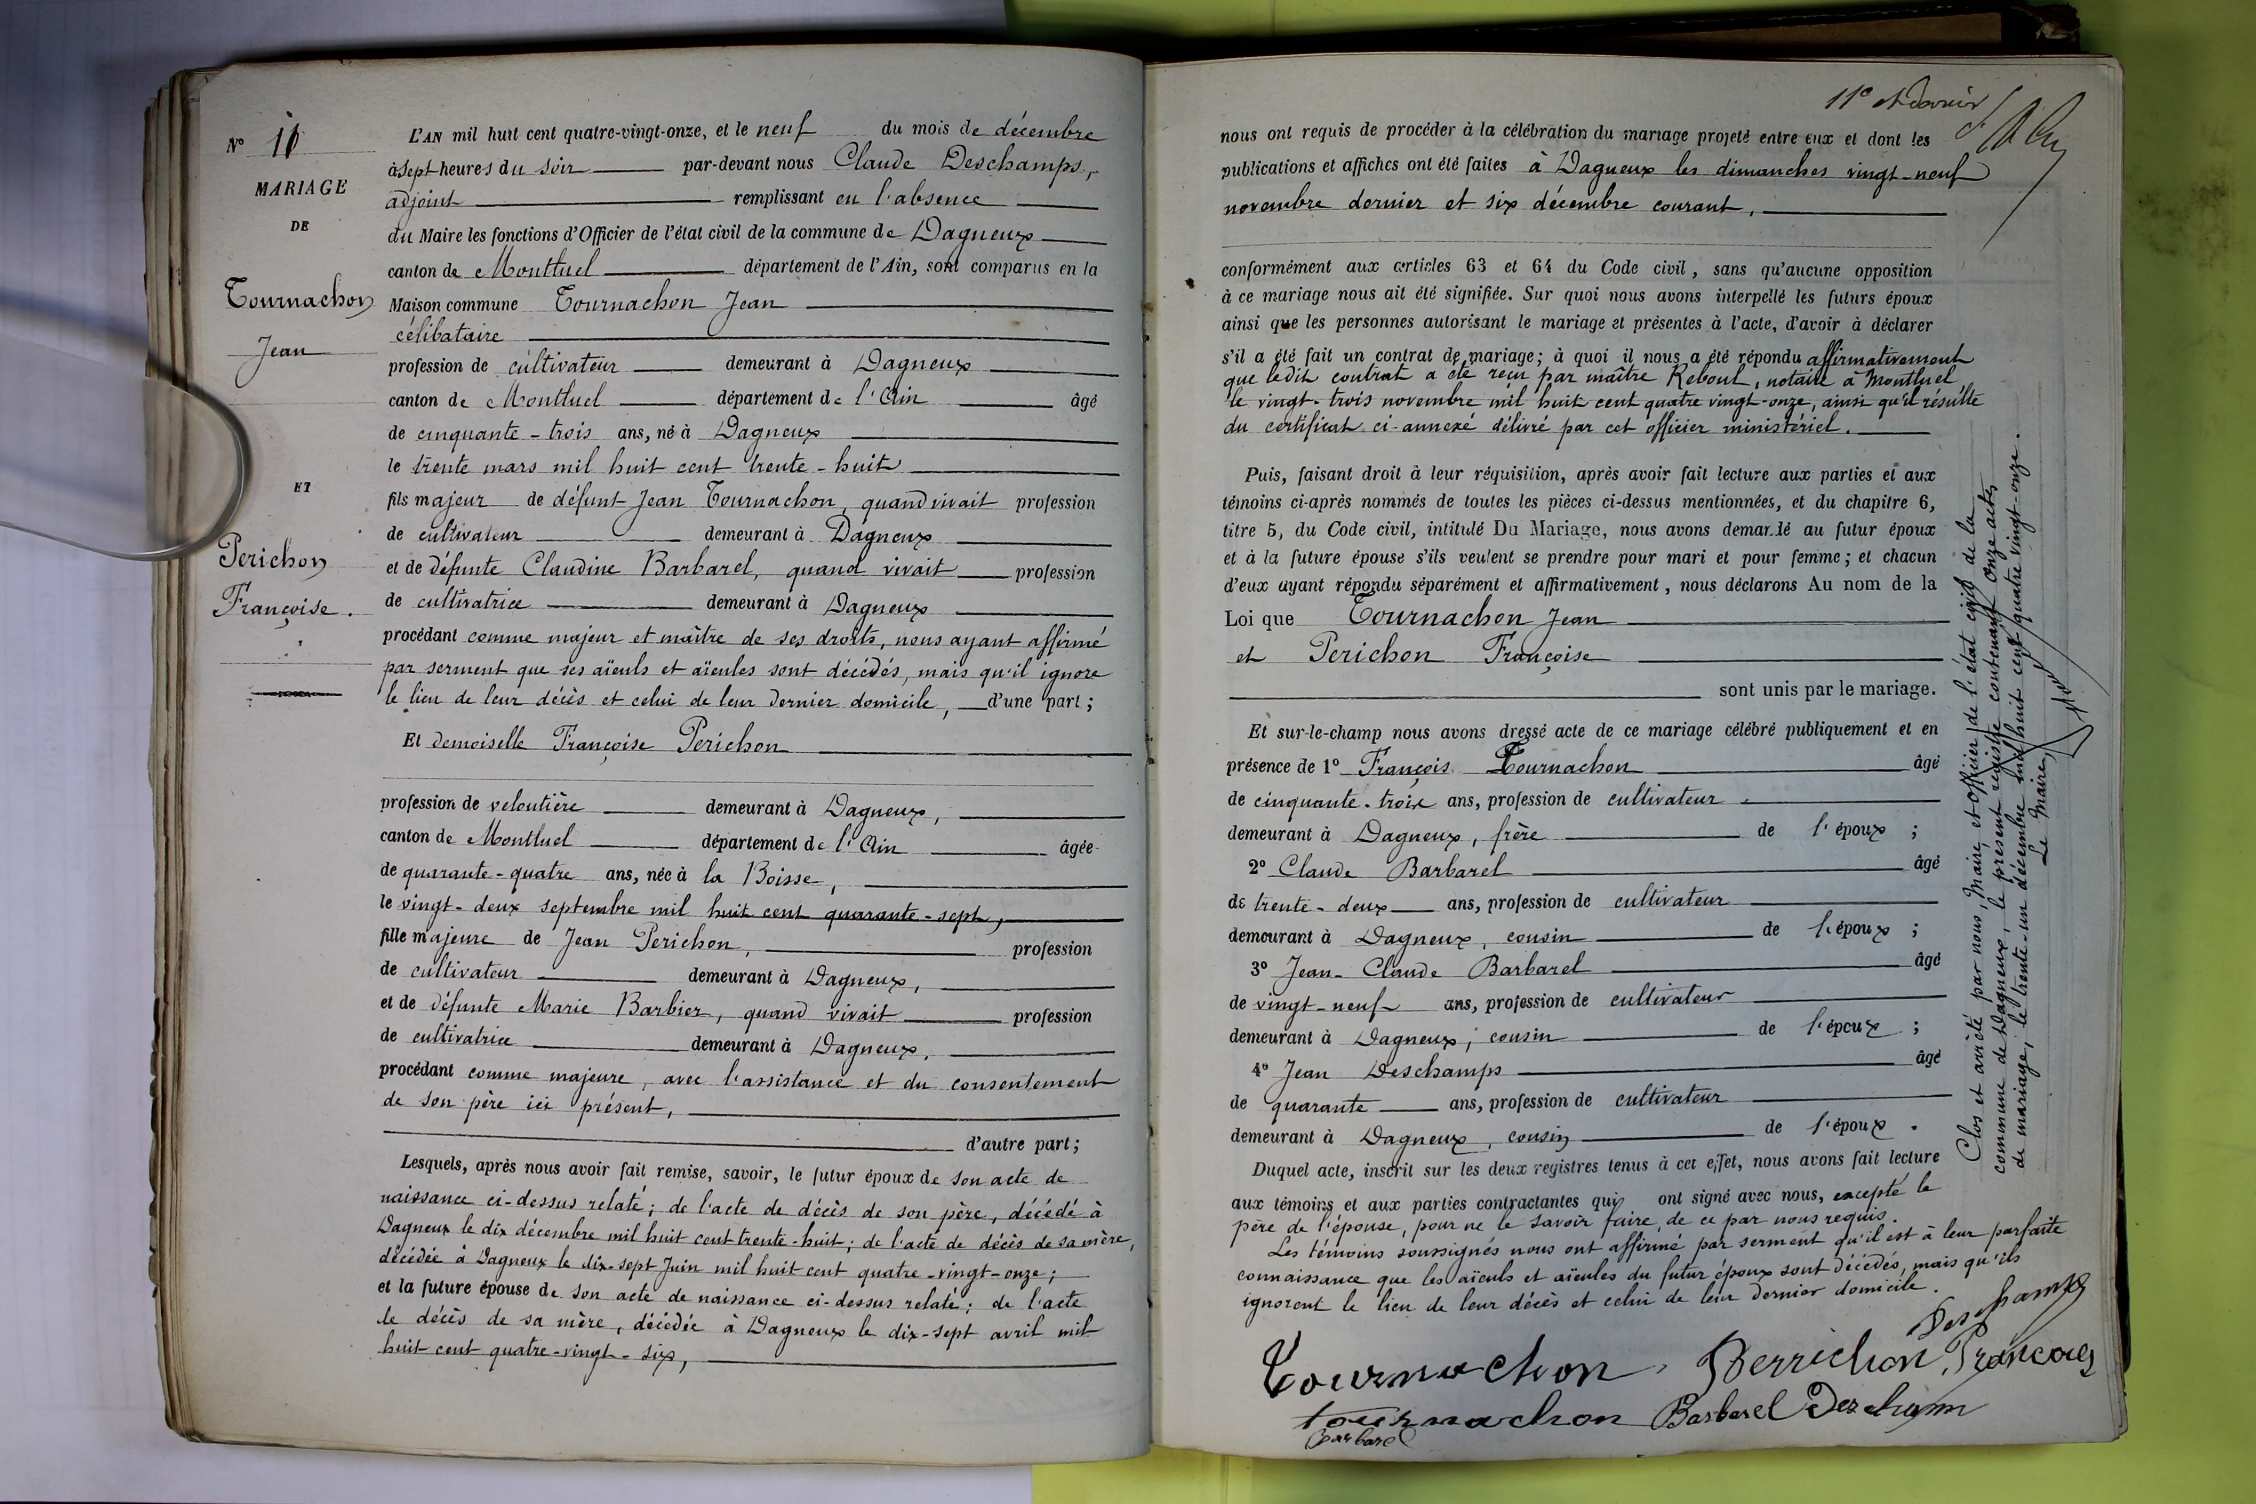 N° 11
MARIAGE
DE
Tournachon
Jean
ET
Perichon
Françoise.
L'AN mil huit cent quatre-vingt-onze, et le neuf du mois de décembre
à sept heures du soir par-devant nous Claude Deschamps,
adjoint remplissant en l'absence
du Maire les fonctions d'Officier de l'état civil de la commune de Dagneux
canton de Montluel département de l'Ain, sont comparus en la
Maison commune Tournachon Jean
célibataire
profession de cultivateur demeurant à Dagneux
canton de Montluel département de l'Ain âgé
de cinquante-trois ans, né à Dagneux
le trente mars mil huit cent trente-huit
fils majeur de défunt Jean Tournachon, quand vivait profession
de cultivateur demeurant à Dagneux
et de défunte Claudine Barbarel, quand vivait profession
de cultivatrice demeurant à Dagneux
procédant comme majeur et maître de ses droits, nous ayant affirmé
par serment que ses aïeuls et aïeules sont décédés, mais qu'il ignore
le lieu de leur décès et celui de leur dernier domicile, d'une part;
Et demoiselle Françoise Perichon
profession de veloutière demeurant à Dagneux,
canton de Montluel département de l'Ain âgée
de quarante-quatre ans, née à la Boisse,
le vingt-deux septembre mil huit cent quarante-sept,
fille majeure de Jean Perichon, profession
de cultivateur demeurant à Dagneux,
et de défunte Marie Barbier, quand vivait profession
de cultivatrice demeurant à Dagneux,
procédant comme majeure, avec l'assistance et du consentement
de son père ici présent,
d'autre part;
Lesquels, après nous avoir fait remise, savoir, le futur époux de son acte de
naissance ci-dessus relaté; de l'acte de décès de son père, décédé à
Dagneux le dix décembre mil huit cent trente-huit; de l'acte de décès de sa mère,
décédée à Dagneux le dix-sept Juin mil huit cent quatre-vingt-onze;
et la future épouse de son acte de naissance ci-dessus relaté; de l'acte
de décès de sa mère, décédée à Dagneux le dix-sept avril mil
huit cent quatre-vingt-six,
11e et dernier
nous ont requis de procéder à la célébration du mariage projeté entre eux et dont les
publications et affiches ont été faites à Dagneux les dimanches vingt-neuf
novembre dernier et six décembre courant,
conformément aux articles 63 et 64 du Code civil, sans qu'aucune opposition
à ce mariage nous ait été signifiée. Sur quoi nous avons interpellé les futurs époux
ainsi que les personnes autorisant le mariage et présentes à l'acte, d'avoir à déclarer
s'il a été fait un contrat de mariage; à quoi il nous a été répondu affirmativement
que ledit contrat a été reçu par maître Reboul, notaire à Montluel
le vingt-trois novembre mil huit cent quatre vingt-onze, ainsi qu'il résulte
du certificat ci-annexé délivré par cet officier ministériel.
Puis, faisant droit à leur réquisition, après avoir fait lecture aux parties et aux
témoins ci-après nommés de toutes les pièces ci-dessus mentionnées, et du chapitre 6,
titre 5, du Code civil, intitulé Du Mariage, nous avons demandé au futur époux
et à la future épouse s'ils veulent se prendre pour mari et pour femme; et chacun
d'eux ayant répondu séparément et affirmativement, nous déclarons Au nom de la
Loi que Tournachon Jean
et Perichon Françoise
sont unis par le mariage.
Et sur-le-champ nous avons dressé acte de ce mariage célébré publiquement et en
présence de 1° François Tournachon âgé
de cinquante-trois ans, profession de cultivateur
demeurant à Dagneux, frère de l'époux;
2° Claude Barbarel âgé
de trente-deux ans, profession de cultivateur
demeurant à Dagneux, cousin de l'époux;
3° Jean-Claude Barbarel âgé
de vingt-neuf ans, profession de cultivateur
demeurant à Dagneux, cousin de l'époux;
4° Jean Deschamps âgé
de quarante ans, profession de cultivateur
demeurant à Dagneux, cousin de l'époux.
Duquel acte, inscrit sur les deux registres tenus à cet effet, nous avons fait lecture
aux témoins et aux parties contractantes qui ont signé avec nous, excepté le
père de l'épouse, pour ne le savoir faire, de ce par nous requis.
Les témoins soussignés nous ont affirmé par serment qu'il est à leur parfaite
connaissance que les aïeuls et aïeules du futur époux sont décédés, mais qu'ils
ignorent le lieu de leur décès et celui de leur dernier domicile.
Deschamps
Tournachon Perrichon Francoies
tournachon Barbarel Deschamp
Barbarel
Clos et arrêté par nous, Maire et officier de l'état civil de la
commune de Dagneux, le présent registre contenant onze actes
de mariage, le trente-un décembre mil huit cent quatre vingt-onze.
Le Maire,